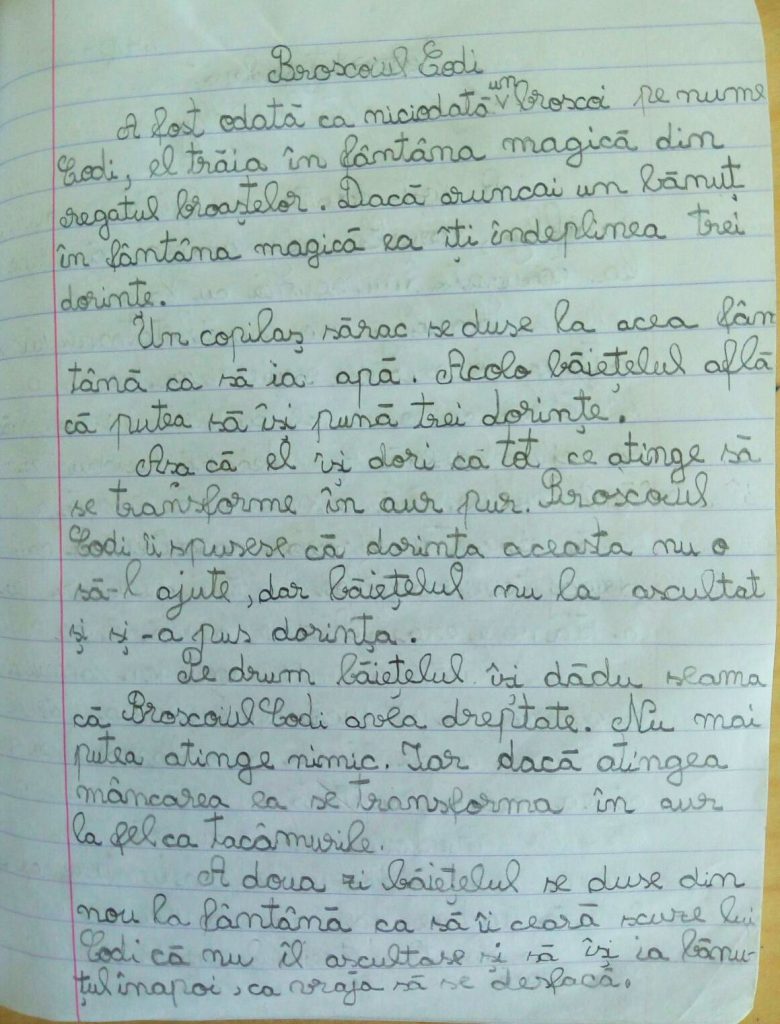 Broscoiul Codi
A fost odată ca niciodată un broscoi pe nume
Codi, el trăia în fântâna magică din
regatul broaștelor. Dacă aruncai un bănuț
în fântâna magică ea îți îndeplinea trei
dorinte.
Un copilaș sărac se duse la acea fân
tână ca să ia apă. Acolo băiețelul află
că putea să își pună trei dorințe.
Asa că el își dori ca tot ce atinge să
se transforme în aur pur. Broscoiul
Codi îi spusese că dorinta aceasta nu o
să-l ajute, dar băiețelul nu la ascultat
și și-a pus dorința.
Pe drum băiețelul își dădu seama
că Broscoiul Codi avea dreptate. Nu mai
putea atinge nimic. Iar dacă atingea
mâncarea ea se transforma în aur
la fel ca tacâmurile.
A doua zi băiețelul se duse din
nou la fântână ca să îi ceară scuze lui
Codi că nu îl ascultase și să își ia bănu-
țul înapoi, ca vraja să se desfacă.